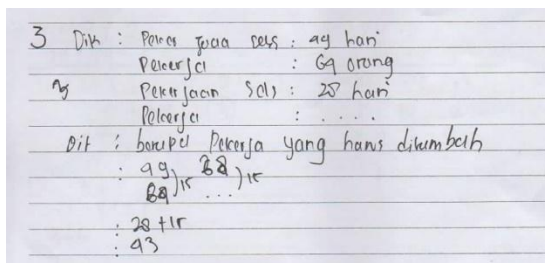 3 Dik : Pekerjaan Sels : 49 hari
Pekerja : 64 orang
Pekerjaan Sels : 28 hari
Pekerja : ....
Dit : berapa Pekerja yang harus ditambah
: 49 ) 15 28 ) 15
64 ...
: 28 + 15
: 43